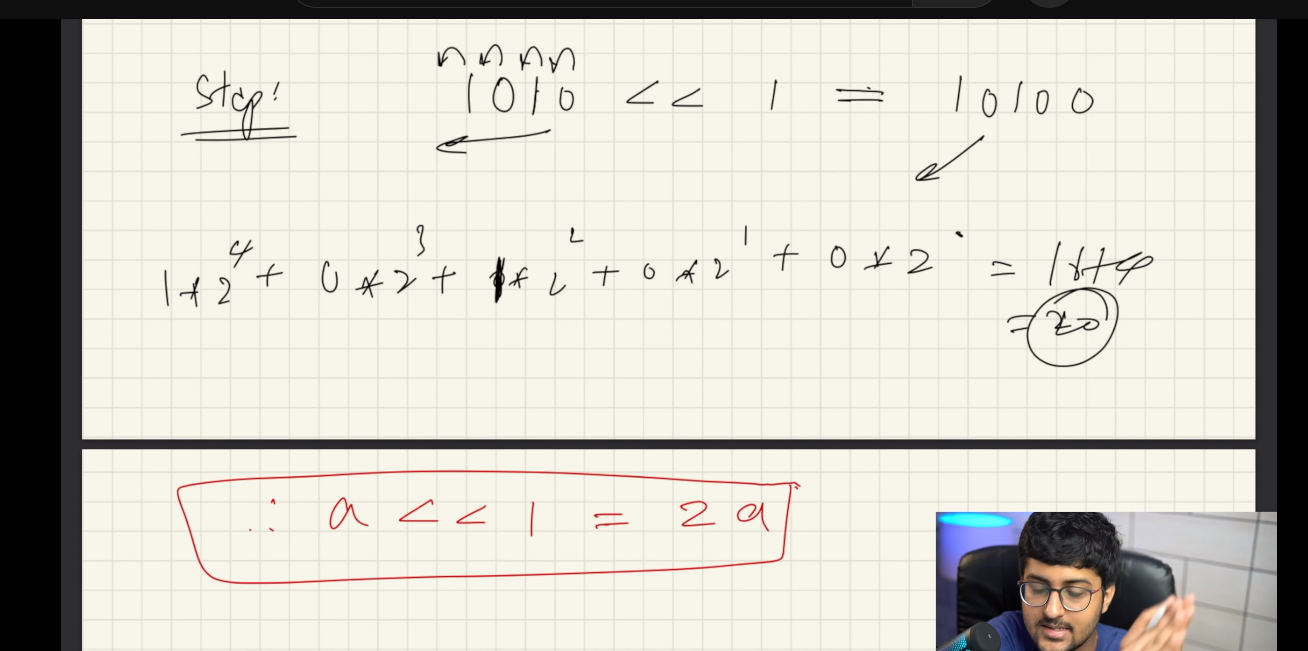 Step: 1010 << 1 = 10100
1*2^4 + 0*2^3 + 1*2^2 + 0*2^1 + 0*2^0 = 16+4
= 20
∴ a << 1 = 2a